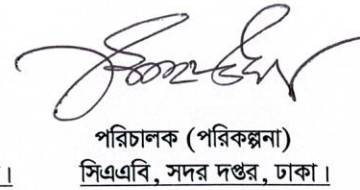 পরিচালক (পরিকল্পনা)
। সিএএবি, সদর দপ্তর, ঢাকা।